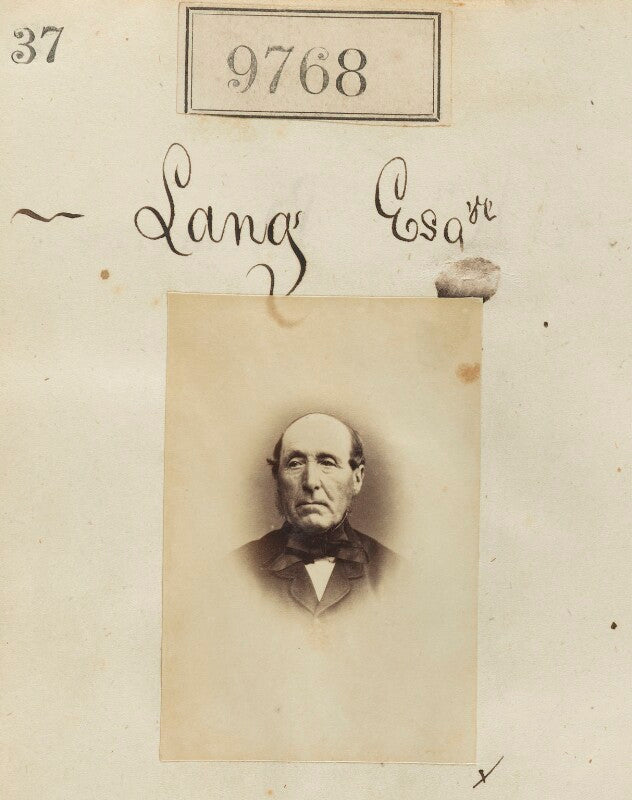 37
9768
~ Lang Esqre
x